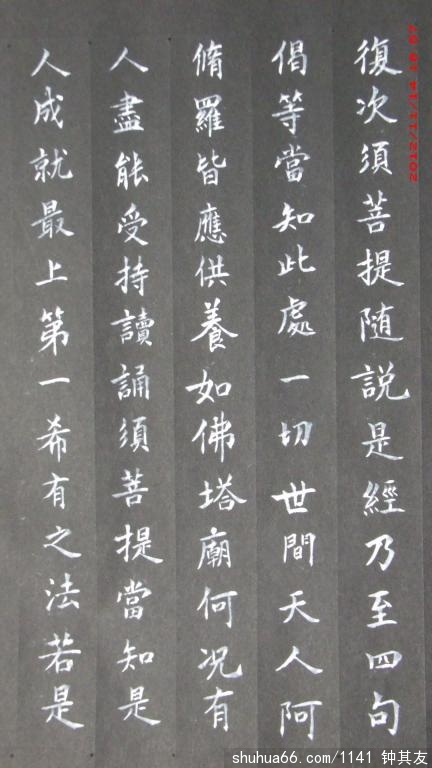 復次須菩提随說是經乃至四句
偈等當知此處一切世間天人阿
脩羅皆應供養如佛塔廟何况有
人盡能受持讀誦須菩提當知是
人成就最上第一希有之法若是
shuhua66.com/1141 钟其友